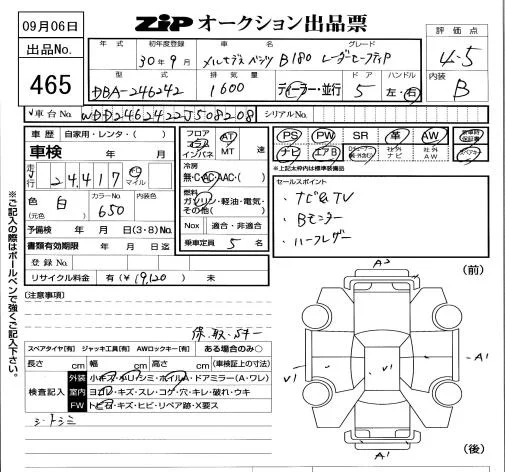 09月06日
出品No.
465
ZIP オークション出品票
評価点
4-5
内装
B
年式
初年度登録
30年9月
車名
メルセデスベンツ B180
グレード
レーダーセーフティP
型式
DBA-246242
排気量
1600
ディーラー・並行
ドア
5
ハンドル
左・右
車台No.
WDD2462422J508208
シリアルNo.
車歴 自家用・レンタ・( )
車検 年 月
走行 24,417 キロ マイル
色 (元色) 白
カラーNo. 650
内装色
予備検 年 月 日(3・8)No.
書類有効期限 年 月 日迄
登録No.
リサイクル料金 有(¥19,120) 未
フロア コラム インパネ
AT
MT 速
冷房
無・C・AC・AAC・( )
燃料
ガソリン・軽油・電気・その他( )
Nox 適合・非適合
乗車定員 5 名
PS PW SR 革 AW 新車時保証書
ナビ エアB 社外ナビ 社外AW
*上記太枠内は標準装備品
セールスポイント
・ナビ&TV
・Bモニター
・ハーフレザー
[注意事項]
保・取・Sキー
スペアタイヤ[有] ジャッキ工具[有] AWロックキー[有] ある場合のみ○
長さ cm 幅 cm 高さ cm (車検証上の寸法)
検査記入
外装 小キズ・小U・シミ・ホイルA・ドアミラー(A・ワレ)
室内 ヨゴレ・キズ・スレ・コゲ・穴・キレ・破れ・ウキ
FW トビ石・キズ・ヒビ・リペア跡・X要ス
※ご記入の際はボールペンで強くご記入下さい。
(前)
A2
V1
V1
A1
A1
(後)